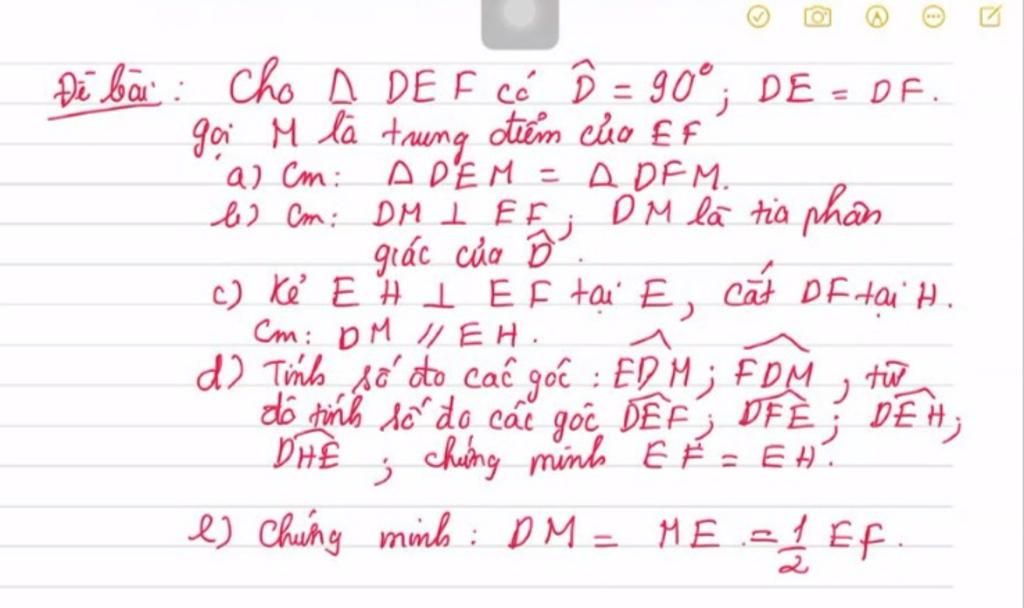 Đề bài: Cho Δ DEF có D̂ = 90°; DE = DF.
gọi M là trung điểm của EF
a) Cm: Δ DEM = Δ DFM.
b) Cm: DM ⊥ EF; DM là tia phân
giác của D̂.
c) Kẻ EH ⊥ EF tại E, cắt DF tại H.
Cm: DM // EH.
d) Tính số đo các góc: EDM; FDM, từ
đó tính số đo các góc DEF; DFE; DEH;
DHE; chứng minh EF = EH.
e) Chứng minh: DM = ME = 1/2 EF.